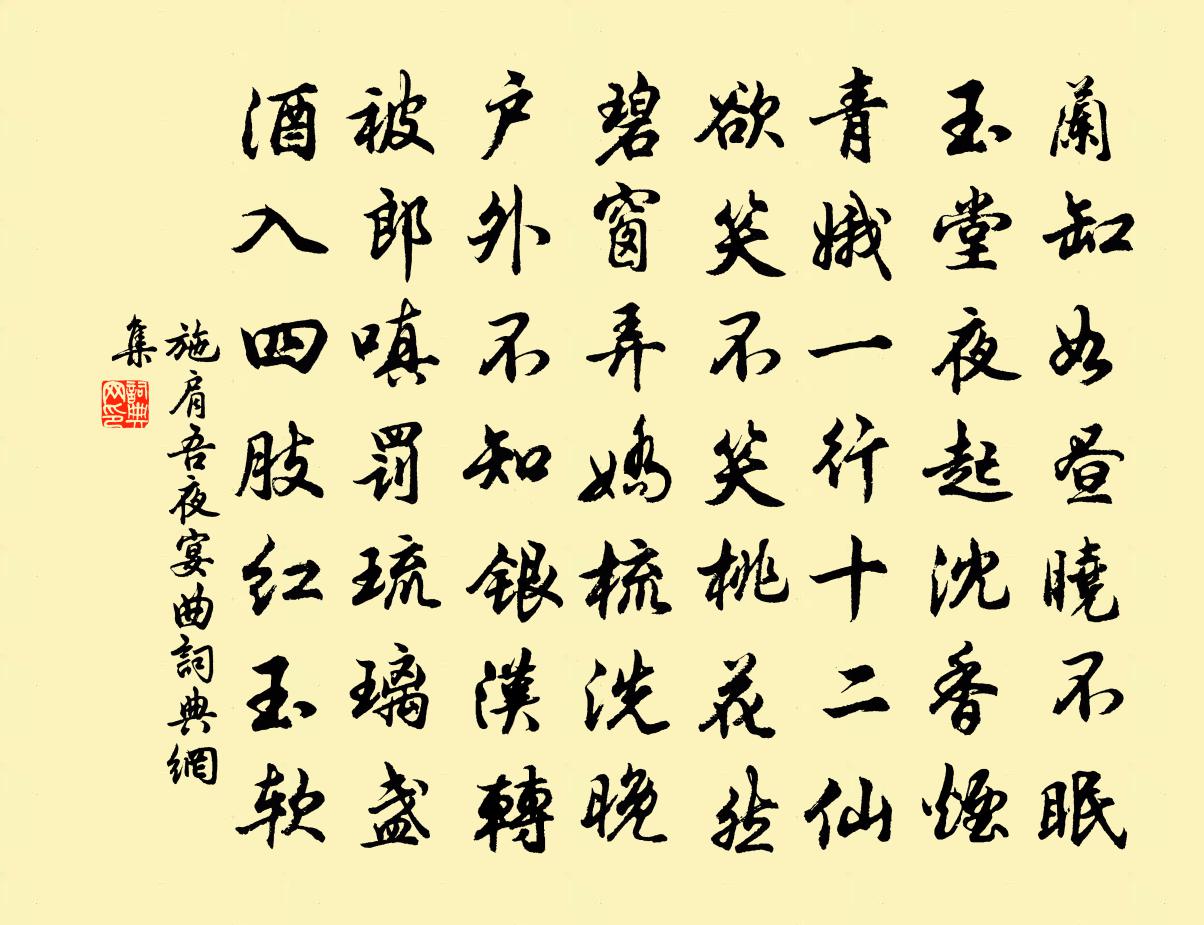 蘭缸如昼曉不眠
玉堂夜起沈香煙
青娥一行十二仙
欲笑不笑桃花然
碧窗弄嬌梳洗晚
户外不知銀漢轉
被郎嗔罰琉璃盏
酒入四肢红玉软
施肩吾夜宴曲詞典網
集
詞典
网印